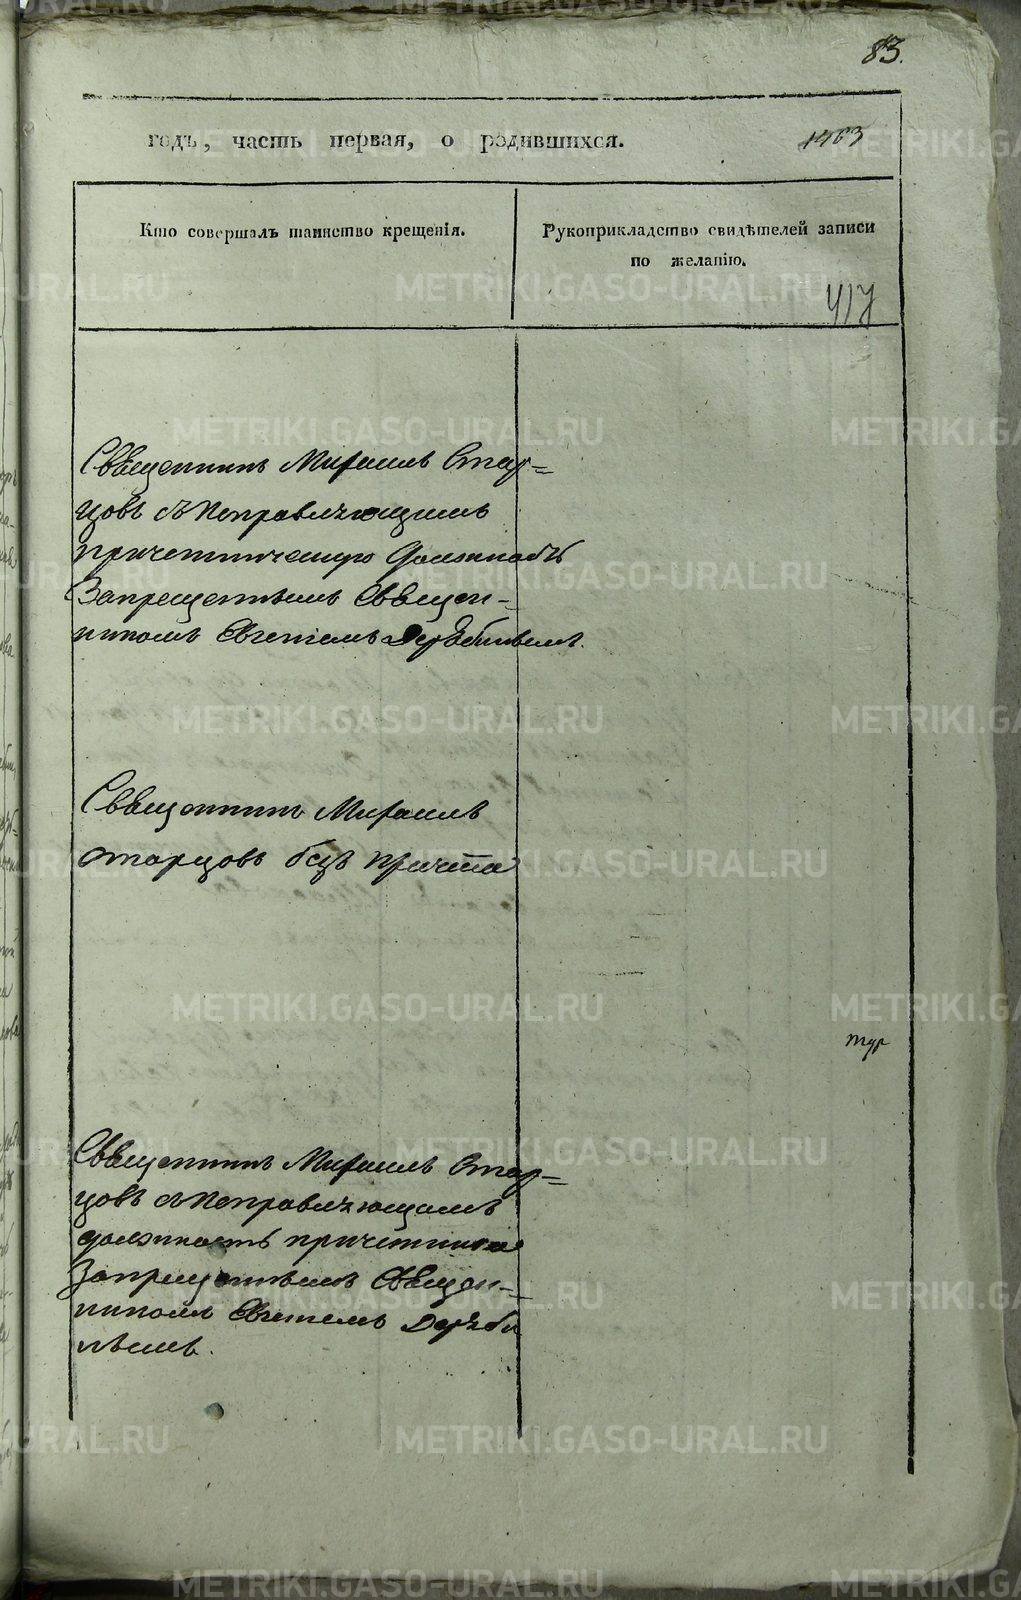 83.
годъ, часть первая, о родившихся.
1463
Кто совершалъ таинство крещенія.
Рукоприкладство свидѣтелей записи
по желанію.
417
Священникъ Михаилъ Стар=
цовъ съ исправляющимъ
причетническую должность
Запрещеннымъ Священ=
никомъ Евгеніемъ
Священникъ Михаилъ
Старцовъ безъ причта
тур
Священникъ Михаилъ Стар=
цовъ съ исправляющимъ
должность причетника
Запрещеннымъ Священ=
никомъ Евгеніемъ
METRIKI.GASO-URAL.RU